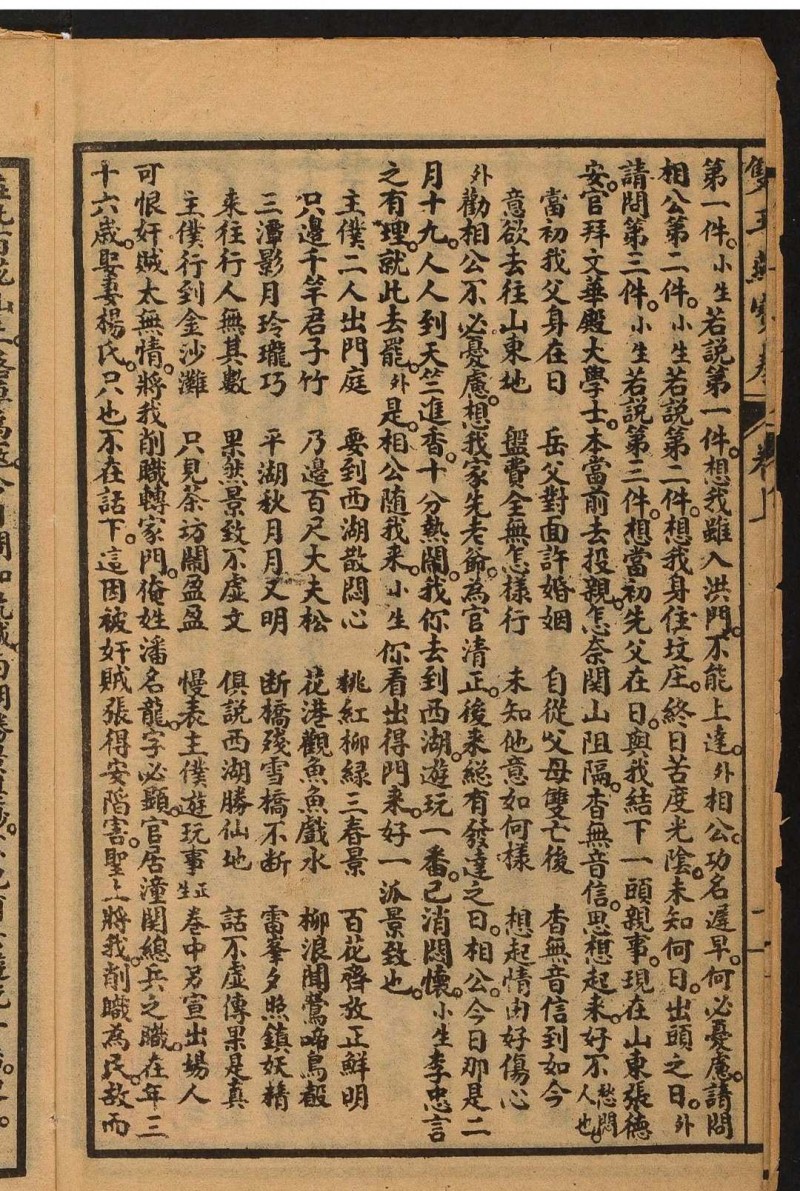 雙玉燕寶卷 卷上 二
第一件。小生若説第一件。想我雖入洪門。不能上達。外相公。功名遲早。何必憂慮。請問
相公第二件。小生若説第二件。想我身住坟庄。終日苦度光陰。未知何日。出頭之日。外
請問第三件。小生若説第三件。想當初先父在日。與我結下一頭親事。現在山東張德
安。官拜文華殿大學士。本當前去投親。怎奈関山阻隔。杳無音信。思想起來。好不愁悶人也
當初我父身在日 岳父對面許婚姻 自從父母雙亡後 杳無音信到如今
意欲去往山東地 盤費全無怎樣行 未知他意如何樣 想起情由好傷心
外勸相公不必憂慮。想我家先老爺。為官清正。後來総有發達之日。相公。今日那是二
月十九。人人到天竺進香。十分熱鬧。我你去到西湖。遊玩一番。已消悶懷。小生李忠言
之有理。就此去罷。外是。相公随我來。小生你看出得門來。好一派景致也。
主僕二人出門庭 要到西湖散悶心 桃紅柳綠三春景 百花齊放正鮮明
只邊千竿君子竹 乃邊百尺大夫松 花港觀魚魚戲水 柳浪聞鶯啼鳥聲
三潭影月玲瓏巧 平湖秋月月又明 断橋殘雪橋不断 雷峯夕照鎮妖精
來往行人無其數 果然景致不虛文 俱説西湖勝仙地 話不虛傳果是真
主僕行到金沙灘 只見茶坊鬧盈盈 慢表主僕遊玩事 卷中另宣出場人
正生可恨奸賊太無情。將我削職轉家門。俺姓潘名龍。字必顯。官居潼関總兵之職。在年三
十六歲。娶妻楊氏。只也不在話下。這因被奸賊張得安陷害。聖上將我。削職為民。故而